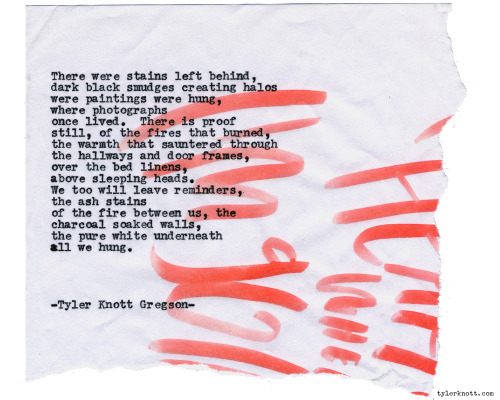 There were stains left behind,
dark black smudges creating halos
were paintings were hung,
where photographs
once lived.  There is proof
still, of the fires that burned,
the warmth that sauntered through
the hallways and door frames,
over the bed linens,
above sleeping heads.
We too will leave reminders,
the ash stains
of the fire between us, the
charcoal soaked walls,
the pure white underneath
all we hung.
-Tyler Knott Gregson-
tylerknott.com